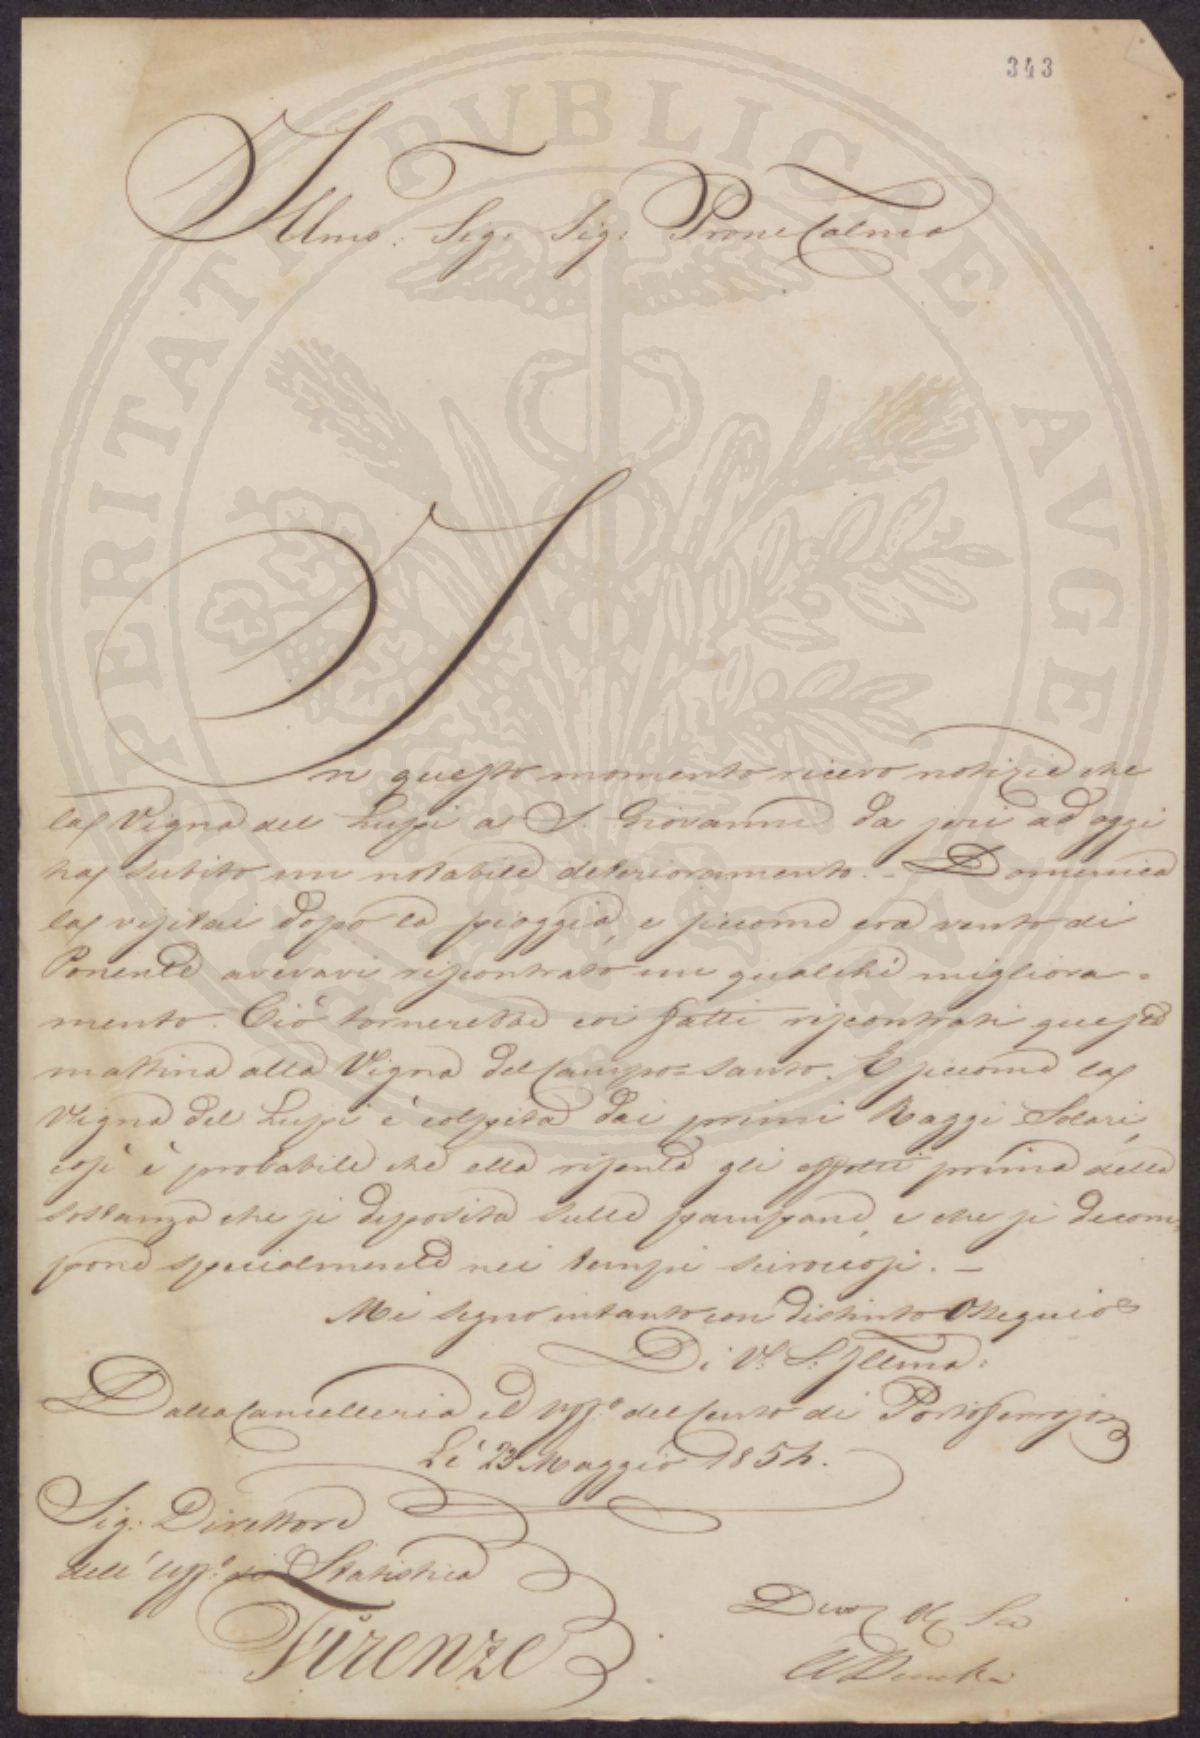 343
Illmo: Sig: Sig: Prone Colmo
In questo momento ricevo notizie che
la Vigna del Lupi a S. Giovanni da jeri ad oggi
ha subito un notabile deterioramento. - Domenica
la visitai dopo la pioggia, e siccome era vento di
Ponente avevavi riscontrato un qualche migliora=
mento. Ciò tornerebbe coi fatti riscontrati questa
mattina alla Vigna del Campo=santo. E siccome la
Vigna del Lupi è colpita dai primi Raggi Solari,
così è probabile che ella risenta gli effetti prima della
sostanza che si deposita sulle pampane, e che si decom=
pone specialmente nei tempi sciroccosi. -
Mi segno intanto con distinto Ossequio
Di V: S: Illma:
Dalla Cancelleria ed Uffo del Censo di Portoferrajo
Li 23 Maggio 1854.
Sig: Direttore
dell' Uffo di Statistica
Firenze
Devo